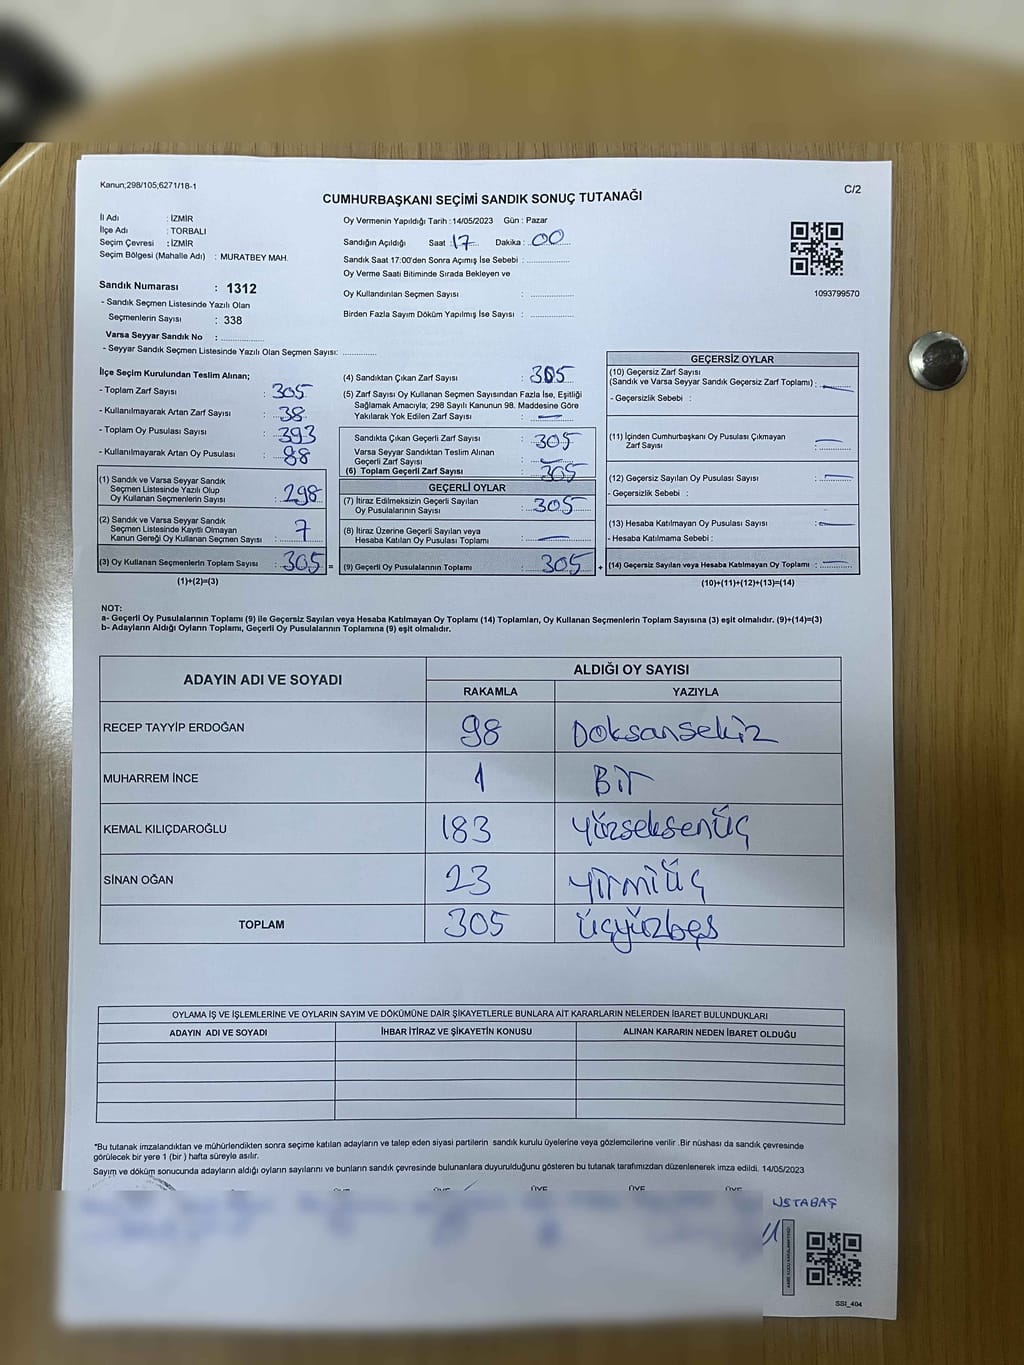 Kanun;298/105;6271/18-1
C/2
CUMHURBAŞKANI SEÇİMİ SANDIK SONUÇ TUTANAĞI
İl Adı : İZMİR
İlçe Adı : TORBALI
Seçim Çevresi : İZMİR
Seçim Bölgesi (Mahalle Adı) : MURATBEY MAH.
Sandık Numarası : 1312
- Sandık Seçmen Listesinde Yazılı Olan
Seçmenlerin Sayısı : 338
Varsa Seyyar Sandık No : ..............
- Seyyar Sandık Seçmen Listesinde Yazılı Olan Seçmen Sayısı: ............
Oy Vermenin Yapıldığı Tarih : 14/05/2023 Gün : Pazar
Sandığın Açıldığı Saat : 17 Dakika : 00
Sandık Saat 17:00'den Sonra Açımış İse Sebebi : ..............
Oy Verme Saati Bitiminde Sırada Bekleyen ve
Oy Kullandırılan Seçmen Sayısı : ..............
Birden Fazla Sayım Döküm Yapılmış İse Sayısı : ..............
1093799570
İlçe Seçim Kurulundan Teslim Alınan;
- Toplam Zarf Sayısı : 305
- Kullanılmayarak Artan Zarf Sayısı : 38
- Toplam Oy Pusulası Sayısı : 393
- Kullanılmayarak Artan Oy Pusulası : 88
(1) Sandık ve Varsa Seyyar Sandık
Seçmen Listesinde Yazılı Olup
Oy Kullanan Seçmenlerin Sayısı : 298
(2) Sandık ve Varsa Seyyar Sandık
Seçmen Listesinde Kayıtlı Olmayan
Kanun Gereği Oy Kullanan Seçmen Sayısı : 7
(3) Oy Kullanan Seçmenlerin Toplam Sayısı : 305 =
(1)+(2)=(3)
(4) Sandıktan Çıkan Zarf Sayısı : 305
(5) Zarf Sayısı Oy Kullanan Seçmen Sayısından Fazla İse, Eşitliği
Sağlamak Amacıyla; 298 Sayılı Kanunun 98. Maddesine Göre
Yakılarak Yok Edilen Zarf Sayısı : —
Sandıkta Çıkan Geçerli Zarf Sayısı : 305
Varsa Seyyar Sandıktan Teslim Alınan
Geçerli Zarf Sayısı : —
(6) Toplam Geçerli Zarf Sayısı : 305
GEÇERLİ OYLAR
(7) İtiraz Edilmeksizin Geçerli Sayılan
Oy Pusulalarının Sayısı : 305
(8) İtiraz Üzerine Geçerli Sayılan veya
Hesaba Katılan Oy Pusulası Toplamı : —
(9) Geçerli Oy Pusulalarının Toplamı : 305 +
GEÇERSİZ OYLAR
(10) Geçersiz Zarf Sayısı
(Sandık ve Varsa Seyyar Sandık Geçersiz Zarf Toplamı) : —
- Geçersizlik Sebebi :
(11) İçinden Cumhurbaşkanı Oy Pusulası Çıkmayan
Zarf Sayısı : —
(12) Geçersiz Sayılan Oy Pusulası Sayısı : —
- Geçersizlik Sebebi :
(13) Hesaba Katılmayan Oy Pusulası Sayısı : —
- Hesaba Katılmama Sebebi :
(14) Geçersiz Sayılan veya Hesaba Katılmayan Oy Toplamı : —
(10)+(11)+(12)+(13)=(14)
NOT:
a- Geçerli Oy Pusulalarının Toplamı (9) ile Geçersiz Sayılan veya Hesaba Katılmayan Oy Toplamı (14) Toplamları, Oy Kullanan Seçmenlerin Toplam Sayısına (3) eşit olmalıdır. (9)+(14)=(3)
b- Adayların Aldığı Oyların Toplamı, Geçerli Oy Pusulalarının Toplamına (9) eşit olmalıdır.
ADAYIN ADI VE SOYADI ALDIĞI OY SAYISI
RAKAMLA YAZIYLA
RECEP TAYYİP ERDOĞAN 98 Doksansekiz
MUHARREM İNCE 1 Bir
KEMAL KILIÇDAROĞLU 183 Yüzseksenüç
SİNAN OĞAN 23 Yirmiüç
TOPLAM 305 üçyüzbeş
OYLAMA İŞ VE İŞLEMLERİNE VE OYLARIN SAYIM VE DÖKÜMÜNE DAİR ŞİKAYETLERLE BUNLARA AİT KARARLARIN NELERDEN İBARET BULUNDUKLARI
ADAYIN ADI VE SOYADI İHBAR İTİRAZ VE ŞİKAYETİN KONUSU ALINAN KARARIN NEDEN İBARET OLDUĞU
*Bu tutanak imzalandıktan ve mühürlendikten sonra seçime katılan adayların ve talep eden siyasi partilerin sandık kurulu üyelerine veya gözlemcilerine verilir .Bir nüshası da sandık çevresinde
görülecek bir yere 1 (bir ) hafta süreyle asılır.
Sayım ve döküm sonucunda adayların aldığı oyların sayılarını ve bunların sandık çevresinde bulunanlara duyurulduğunu gösteren bu tutanak tarafımızdan düzenlenerek imza edildi. 14/05/2023
ÜYE ÜYE ÜYE ÜYE ÜYE
USTABAŞ
SSI_404